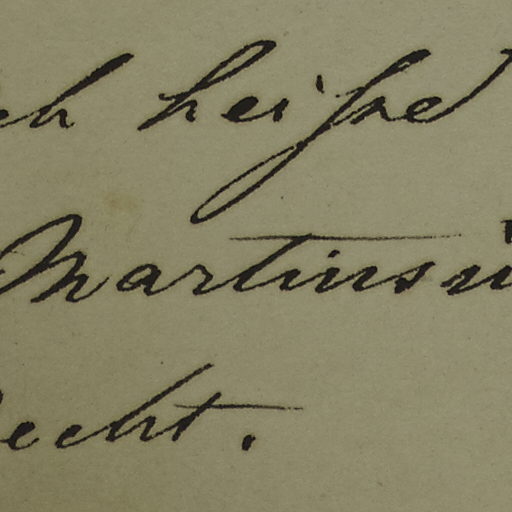 ch heißed
Martinsü
echt.